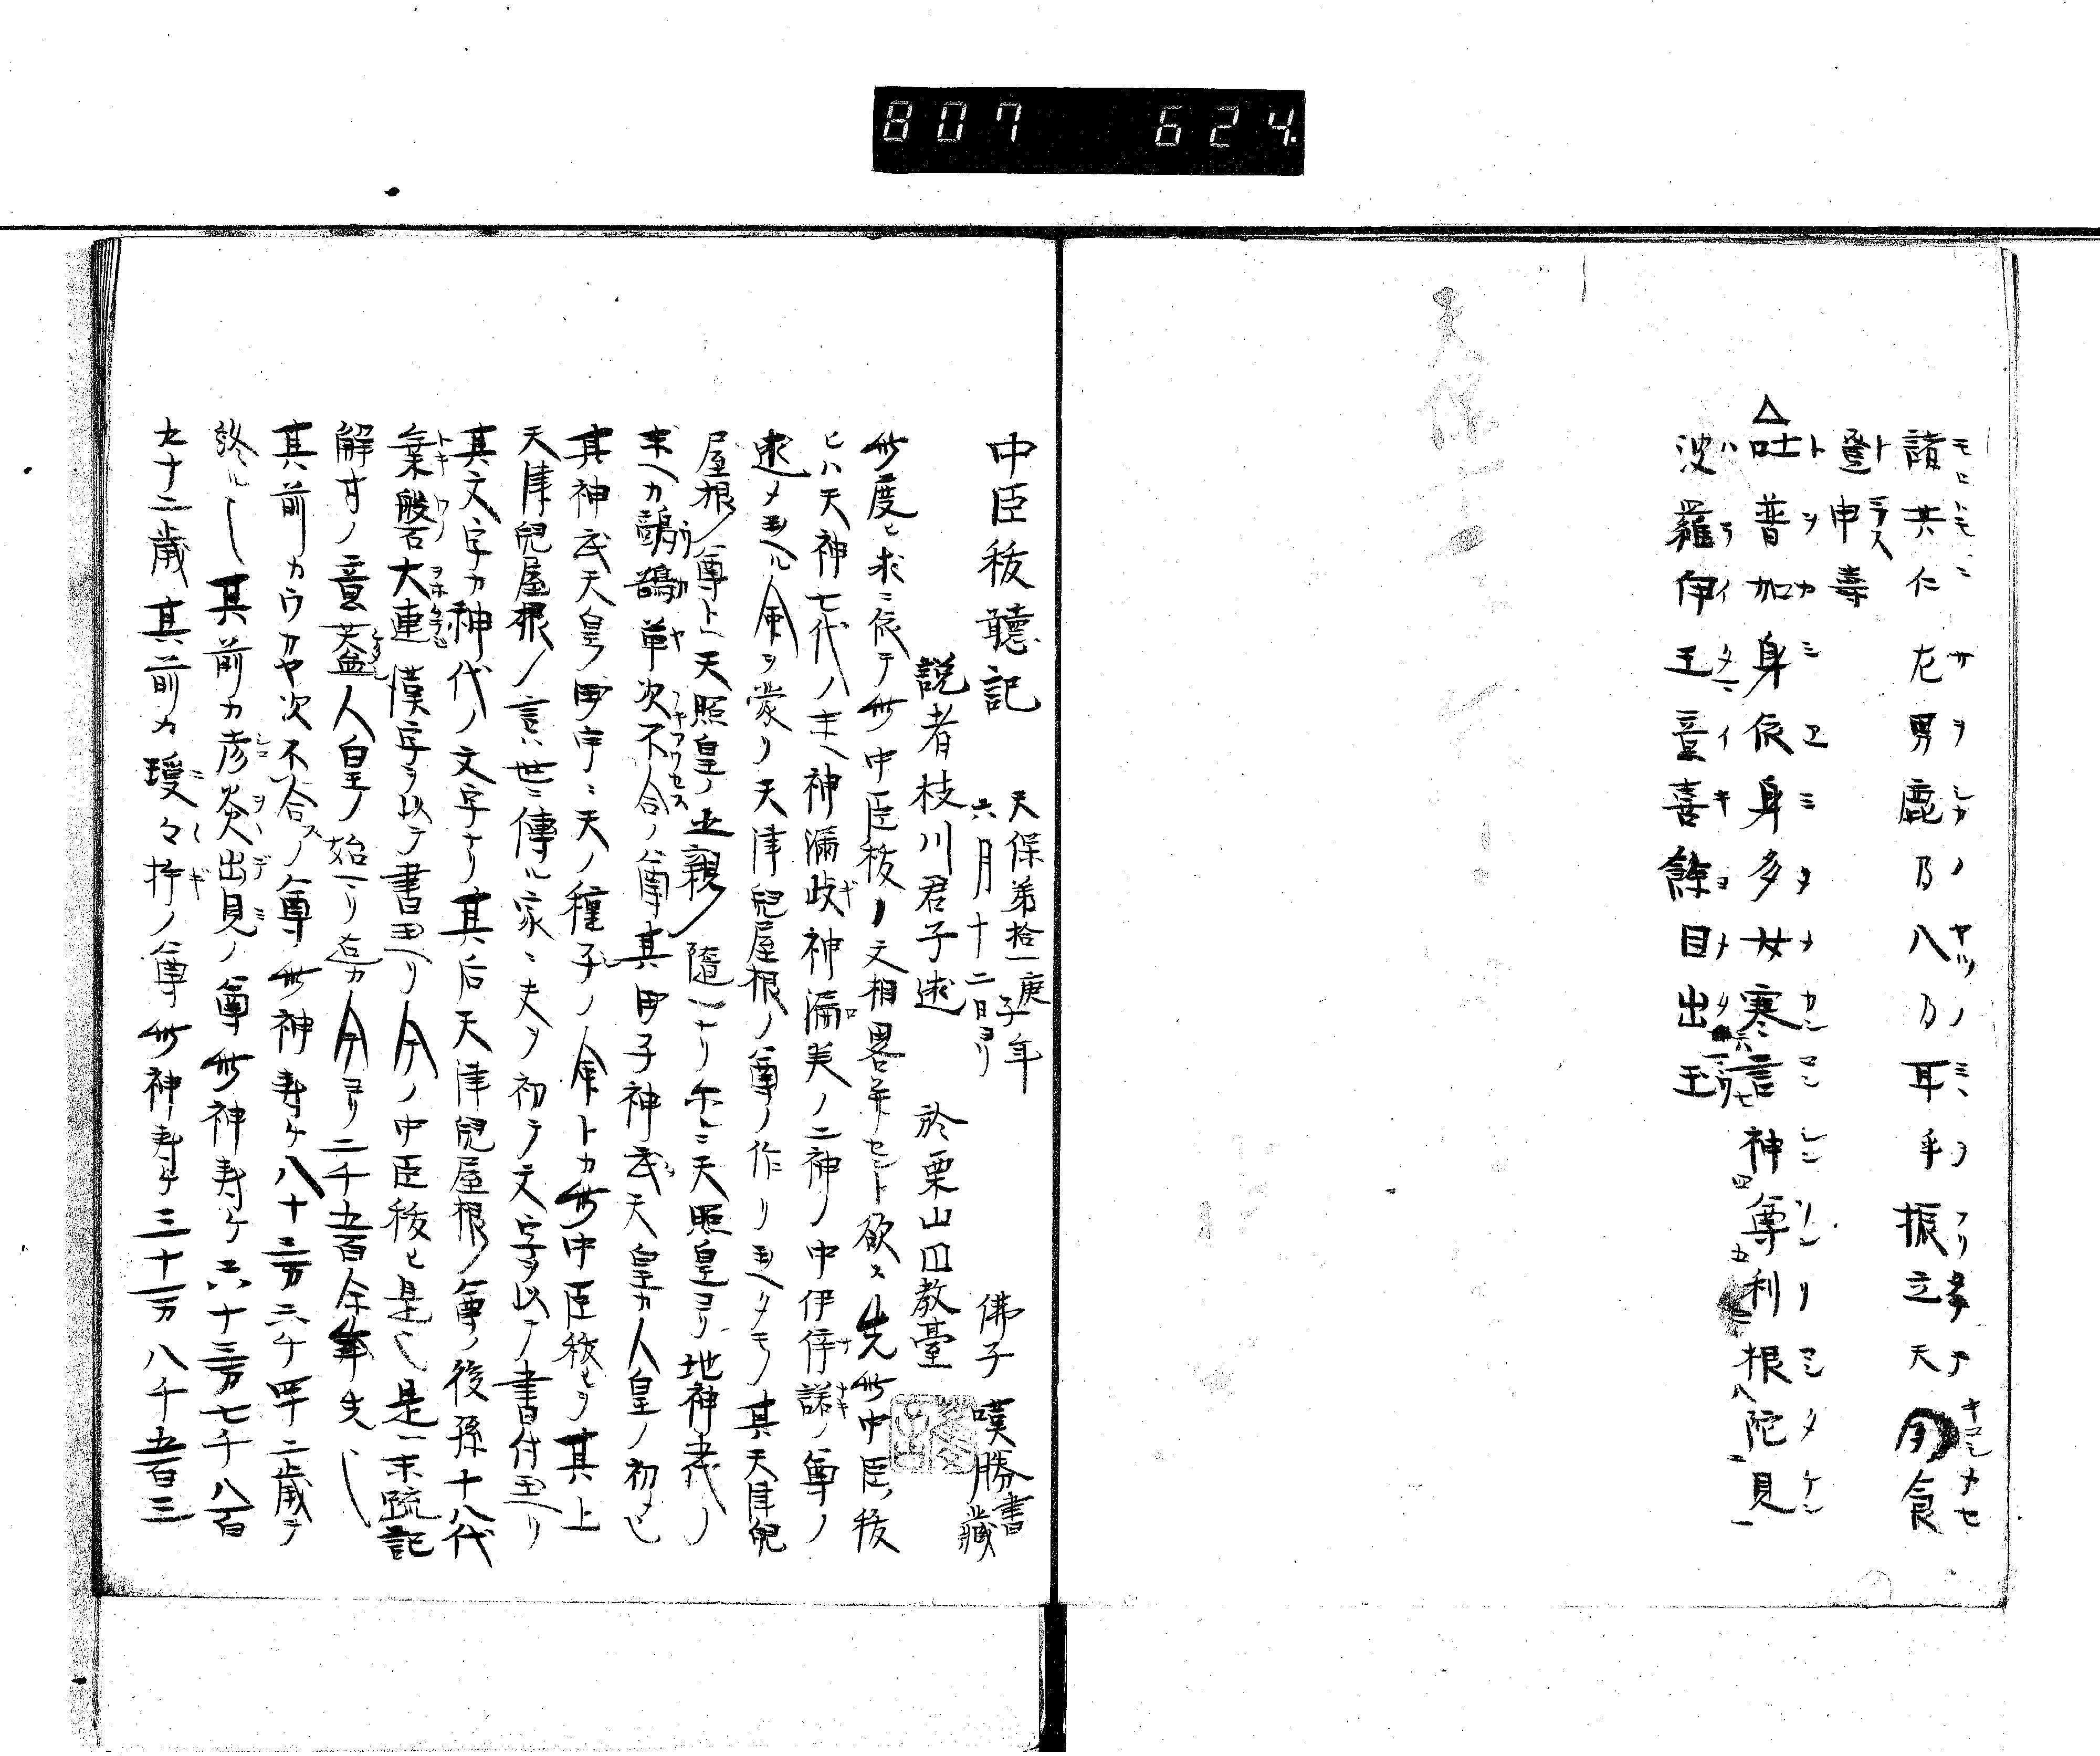 807 624.
諸共仁左男鹿乃八乃耳乎振立天聞食
登申寿
△吐普加身依身多女寒言神尊利根陀見
波羅伊玉意喜餘目出玉
天保十一
中臣秡聽記 天保第拾一庚子年
六月十二日ヨリ 佛子 嘆勝書藏
説者枝川君子述 於栗山田教臺
此度ヒ求ニ依テ此中臣秡ノ文相畧弁セント欲ス先此中臣秡
ヒハ天神七代ノ末ヘ神漏岐神漏美ノ二神ノ中伊弉諾ノ尊ノ
述メ玉ヘル命ヲ蒙リ天津兒屋根ノ尊ノ作リ玉ヘリタモノ其天津兒
屋根ノ尊ト天照皇ノ親 随一ナリ尓ルニ天照皇ヨリ地神五代ノ
末ヘカ鸕鶿草次不合ノ尊其甲子神武天皇カ人皇ノ初メ也
其神武天皇ノ御宇ニ天ノ種子ノ命トカ此中臣秡ヒヲ其上
天津兒屋根ノ言ハ世ニ傳ル家ニ夫ヲ初テ文字ヲ以テ書付玉ヘリ
其文字カ神代ノ文字ナリ其后天津兒屋根ノ尊ノ後孫十八代
常磐大連漢字ヲ以テ書玉ヘリ今ノ中臣秡ヒ是也是一末疏記
解ノ意 人皇ノ始リ 今ヨリ二千五百余年先
其前カウカヤ次不合ノ尊此神寿ケ八十三万六千四十二歳テ
終ル 其前カ彦炎出見ノ尊此神寿ケ六十三万七千八百
九十二歳其前カ瓊々杵ノ尊此神寿ケ三十一万八千五百三